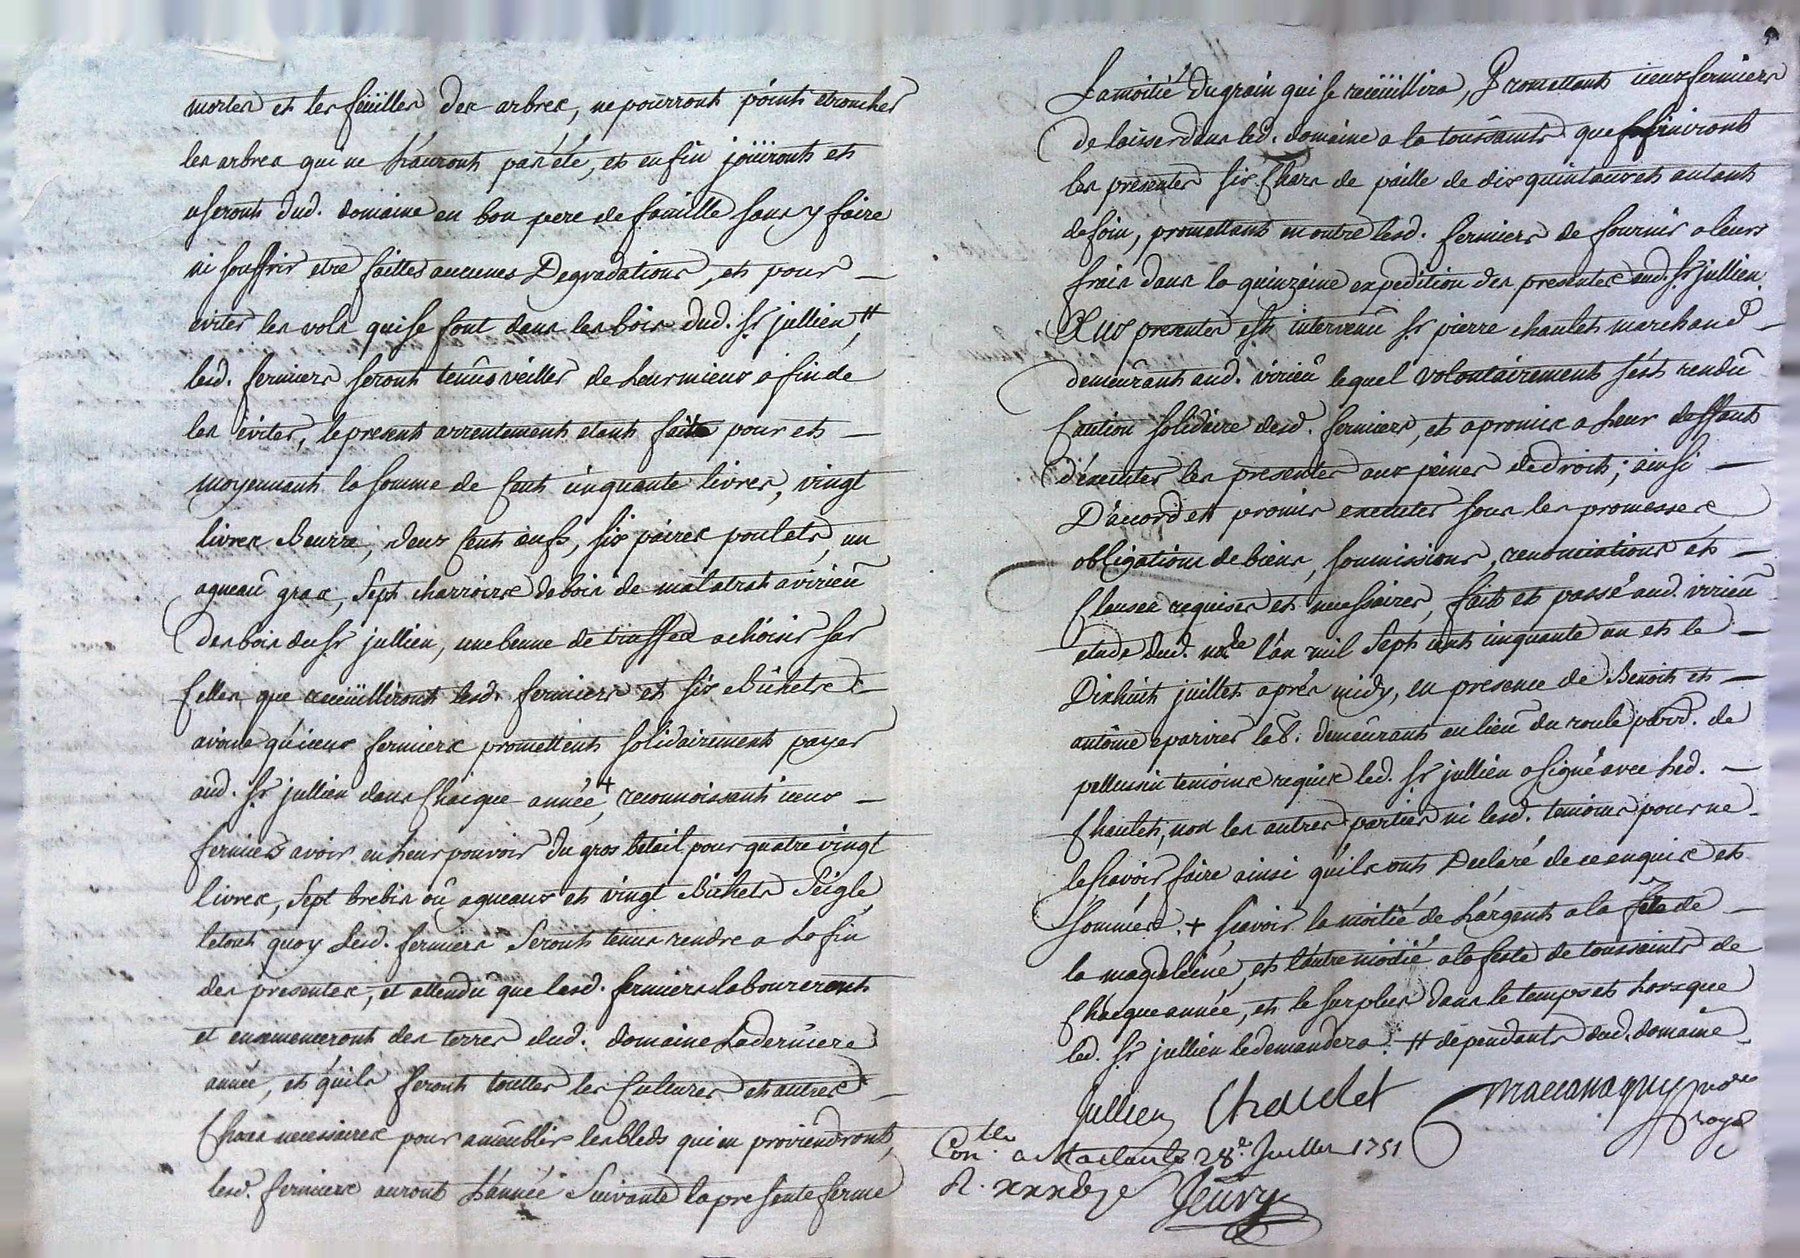 mortes et les feüilles des arbres, ne pourront point etroncher
les arbres qui ne l'auront pas été, et enfin joüiront et
useront dud. domaine en bon pere de famille sans y faire
ni souffrir etre faittes aucunes Degradations, et pour
eviter les vols qui se font dans les bois dud. sr jullien, #
lesd. fermiers seront tenûs veiller de leur mieux afin de
les eviter, le present arrentement etant fait pour et
moyennant la somme de Cent cinquante livres, vingt
livres Beurre, deux Cent œufs, six paires poulets, un
agneau gras, sept charrois de bois de malatrat a virieû
des bois du sr jullien, une benne de truffes a choisir sur
Celles que receüilliront lesd. fermiers et six Bichets
avoine qu'iceux fermiers promettent solidairement payer
aud. sr jullien dans Chaque année, + reconnoissant iceux
fermiers avoir en leur pouvoir du gros betail pour quatre vingt
livres, sept brebis oû agneaux et vingt Bichets Seigle,
le tout quoy lesd. fermiers seront tenus rendre a la fin
des presentes, et attendû que lesd. fermiers laboureront
et ensemenceront des terres dud. domaine la derniere
année, et qu'ils feront touttes les Cultures et autres
Choses necessaires pour ameublir les bleds qui en proviendront,
lesd. fermiers auront l'année suivante la presente ferme
La moitié du grain qui se receüillira, Promettant iceux fermiers
de laisser dans led. domaine a la toussaints que finiront
les presentes six Chars de paille de dix quintaux et autant
de foin, promettant en outre lesd. fermiers de fournir a leurs
frais dans la quinzaine expedition des presentes aud. sr jullien.
Aux presentes est intervenû sr pierre chaulet marchand
demeûrant aud. virieû lequel volontairement s'est rendû
Caution solidaire desd. fermiers, et a promis a leur deffaut
d'executer les presentes aux peines de droit; ainsi
D'accord et promis executer sous les promesses
obligations de biens, soumissions, renonciations et
Clauses requises et necessaires, fait et passé aud. virieû
etude dud. nre l'an mil sept cent cinquante un et le
Dixhuit juillet après midy, en presence de Benoit et
antoine eparvier lab. demeûrants au lieu du roule parr. de
pellussin temoins requis led. sr jullien a signé avec led.
Chaulet, non les autres parties ni lesd. temoins pour ne
le sçavoir faire ainsi qu'ils ont Declaré de ce enquis et
sommés. + sçavoir la moitié de l'argent a la fête de
la magdeleine, et l'autre moitié a la feste de toussaints de
Chaque année, et le surplus dans le temps et lorsque
led. sr jullien le demandera. # dépendants dud. domaine.
Jullien Chaulet
Conlle a Maclas le 28e. Juillet 1751